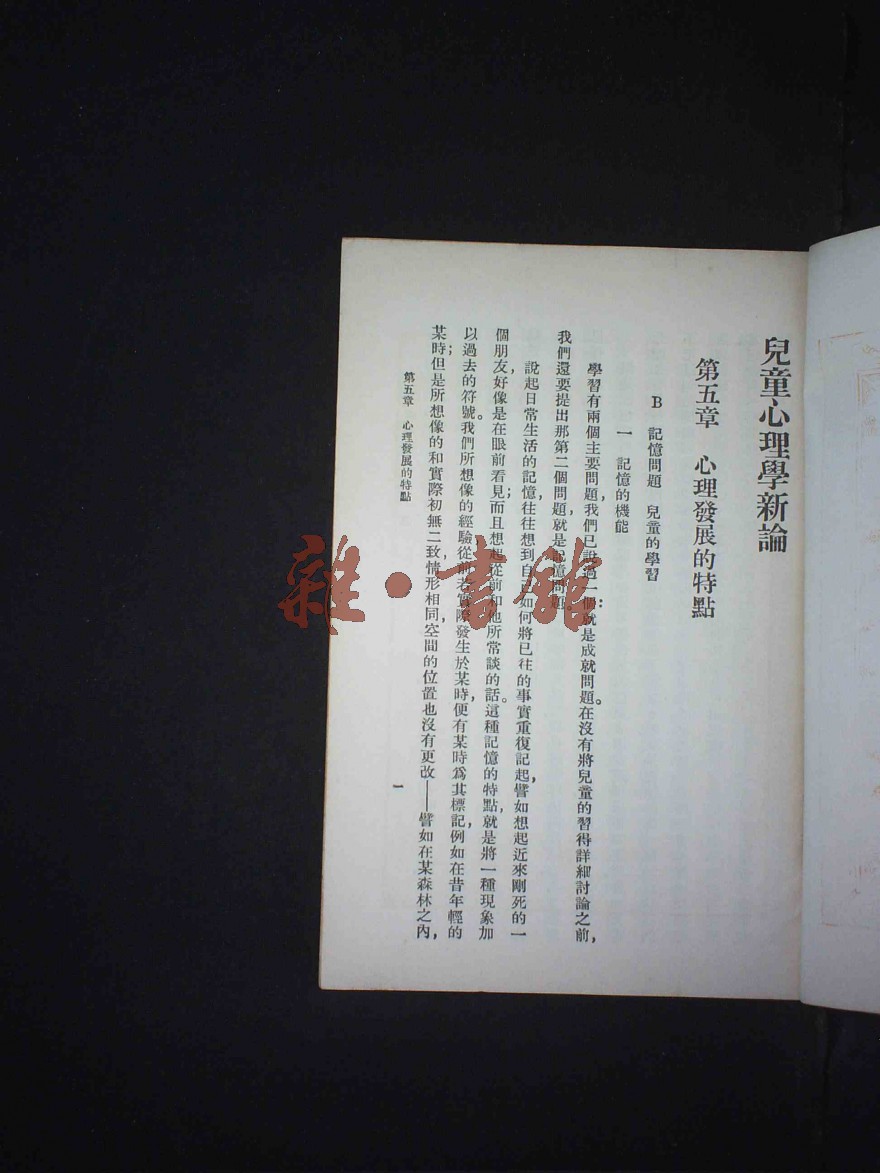 兒童心理學新論
第五章　心理發展的特點
B　記憶問題　兒童的學習
一　記憶的機能
學習有兩個主要問題，我們已說過一個：就是成就問題。在沒有將兒童的習得詳細討論之前，
我們還要提出那第二個問題，就是記憶問題。
說起日常生活的記憶，往往想到自己如何將已往的事實重復記起，譬如想起近來剛死的一
個朋友，好像是在眼前看見；而且想起從前和他所常談的話。這種記憶的特點，就是將一種現象加
以過去的符號。我們所想像的經驗從前若實際發生於某時，便有某時爲其標記，例如在昔年輕的
某時；但是所想像的和實際初無二致，情形相同，空間的位置也沒有更改——譬如在某森林之內，
第五章　心理發展的特點
一
雜·書館